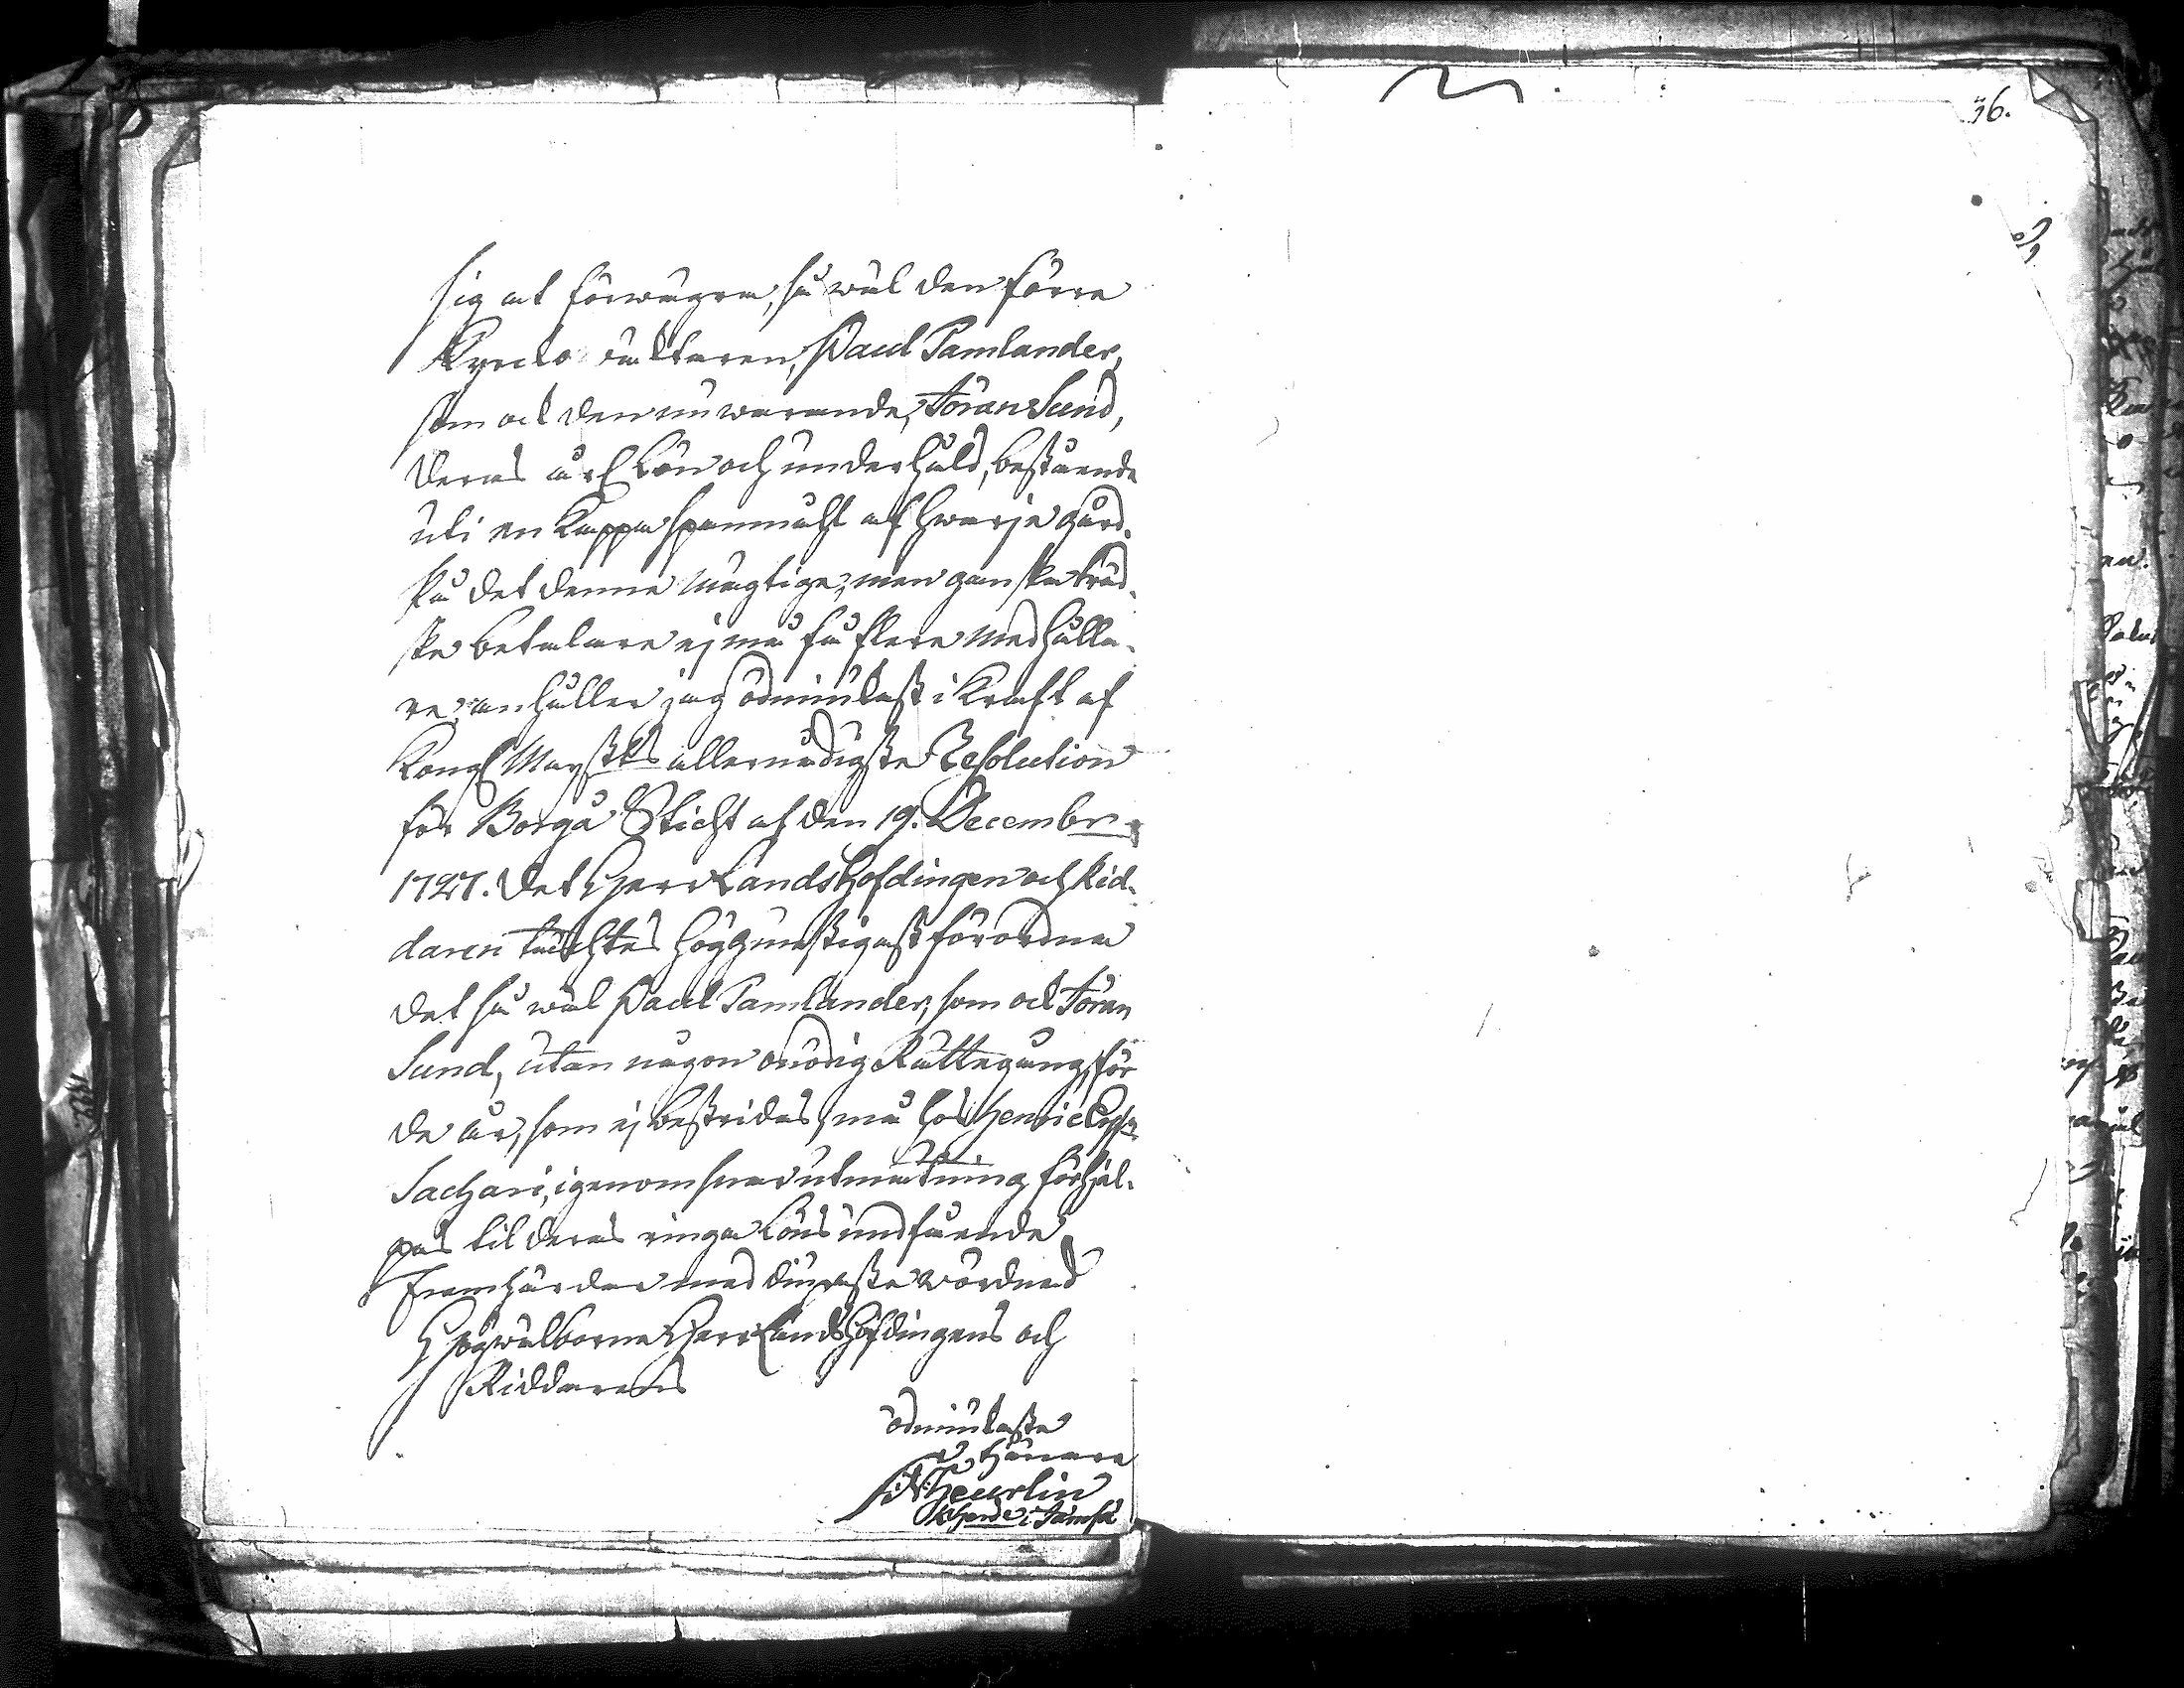 36.
sig at förwägra, så wäl den förre
Kyrckowäcktaren, Paul Tamlander,
som ock den nu warande, Jöran Sund,
deras årl. Lön och underhåld, bestående
uti en Kappa spannmåhl af hwarje gård.
På det denne mägtige, men ganska tred-
ske betalare ej må få flere medhålla-
re; anhåller jag ödmiukast i Kraft af
Kongl Mayst:ts allernådigste Resolution
för Borgå Sticht af den 19. Decembr:
1727. det Herr Landshöfdingen och Rid-
daren täcktes höggunstigast förordna
det så wäl Paul Tamlander, som ock Jöran
Sund, utan någon onödig Rättegång, för
de år, som ej bestridas, må hos Henric
Sachari, igenom snar utmätning förhjel-
pas til deras ringa Löns undfående
Framhärdar med diupaste wördnad
Högwälborne Herr Landshöfdingens och
Riddarens
ödmiukaste
tienare
Heurlin
i Jämsä